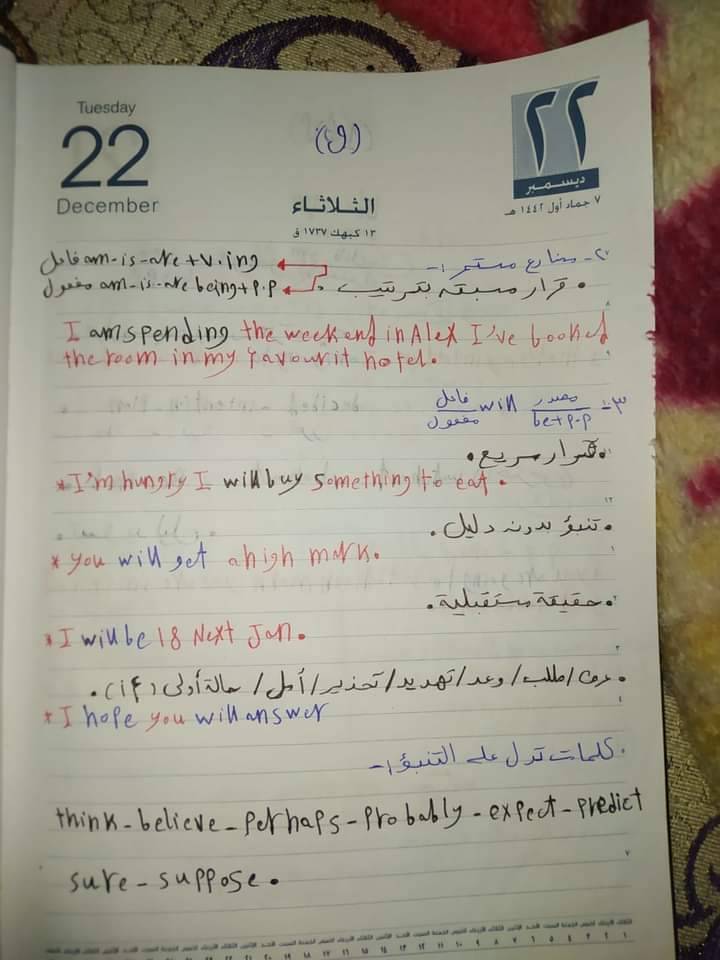 Tuesday
22
December
(و)
الثلاثاء
١٣ كيهك ١٧٣٧ ق
٢٢
ديسمبر
٧ جماد أول ١٤٤٢ هـ
٢- مضارع مستمر :-
فاعل am-is-are + v.ing
• قرار مسبقة بترتيب
مفعول am-is-are being + p.p
I am spending the weekend in Alex I've booked
the room in my favourit hotel.
٣- فاعل / مفعول will مصدر / be + p.p
• قرار سريع •
* I'm hungry I will buy something to eat.
• تنبؤ بدون دليل.
* you will get a high mark.
• حقيقة مستقبلية.
* I will be 18 Next Jan.
• عرض / طلب / وعد / تهديد / تحذير / أمل / حالة أولى (if).
* I hope you will answer
• كلمات تدل على التنبؤ :-
think - believe - perhaps - probably - expect - predict
sure - suppose.